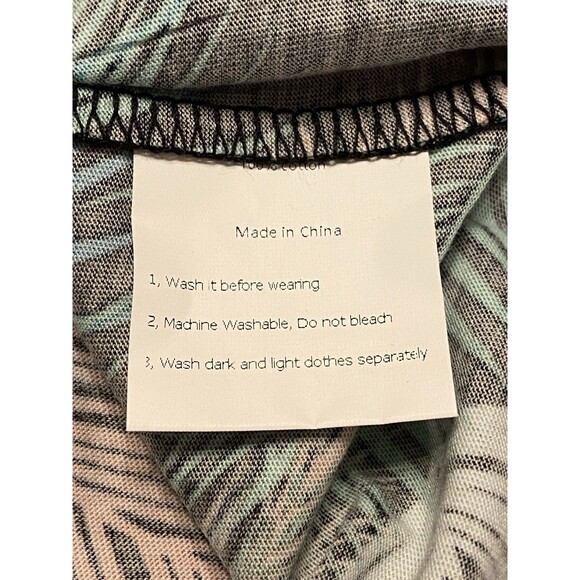 100% cotton
Made in China
1, Wash it before wearing
2, Machine Washable, Do not bleach
3, Wash dark and light clothes separately